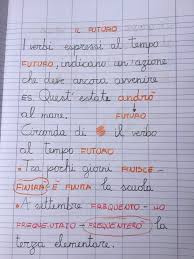 IL FUTURO
I verbi espressi al tempo
FUTURO, indicano un'azione
che deve ancora avvenire
ES. Quest'estate andrò
al mare. FUTURO
Circonda di il verbo
al tempo FUTURO
• Tra pochi giorni FINISCE -
FINIRÀ - È FINITA la scuola
• A settembre FREQUENTO - HO
FREQUENTATO - FREQUENTERÒ la
terza elementare.